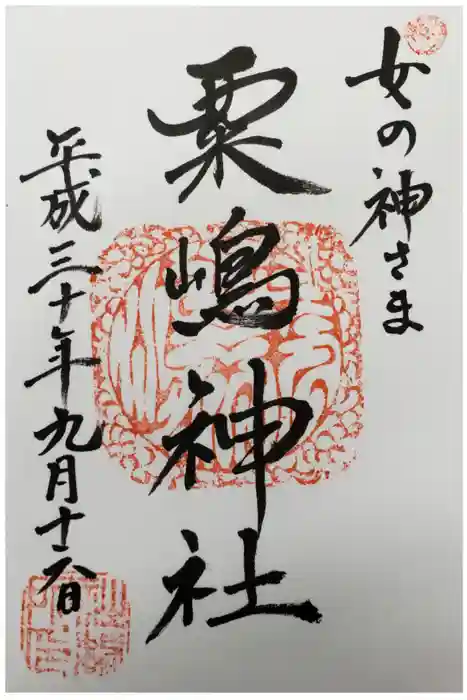 女の神さま
粟嶋神社
平成三十年九月十六日